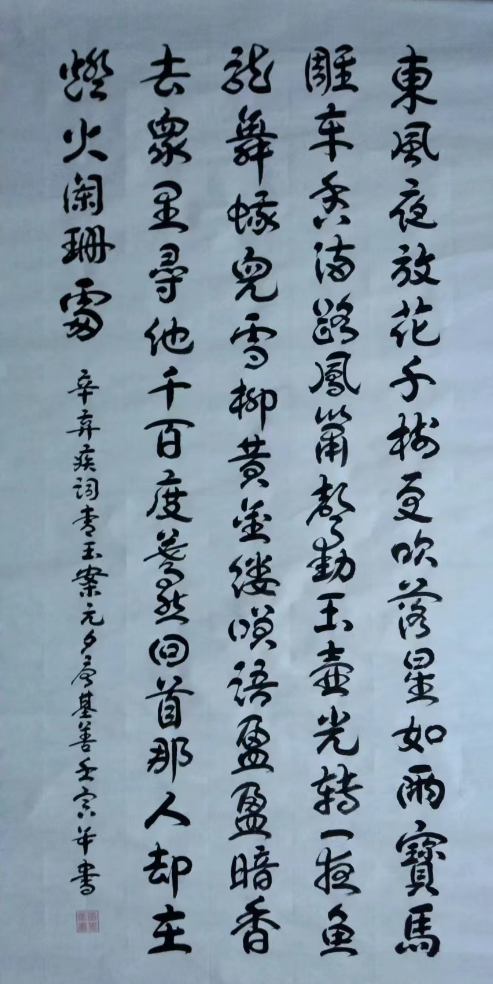 東風夜放花千樹更吹落星如雨寶馬
雕車香滿路鳳簫聲動玉壺光轉一夜魚
龍舞蛾兒雪柳黄金縷嘆語盈盈暗香
去衆里尋他千百度驀然回首那人却在
燈火闌珊處
辛弃疾詞青玉案元夕基善壬寅年書